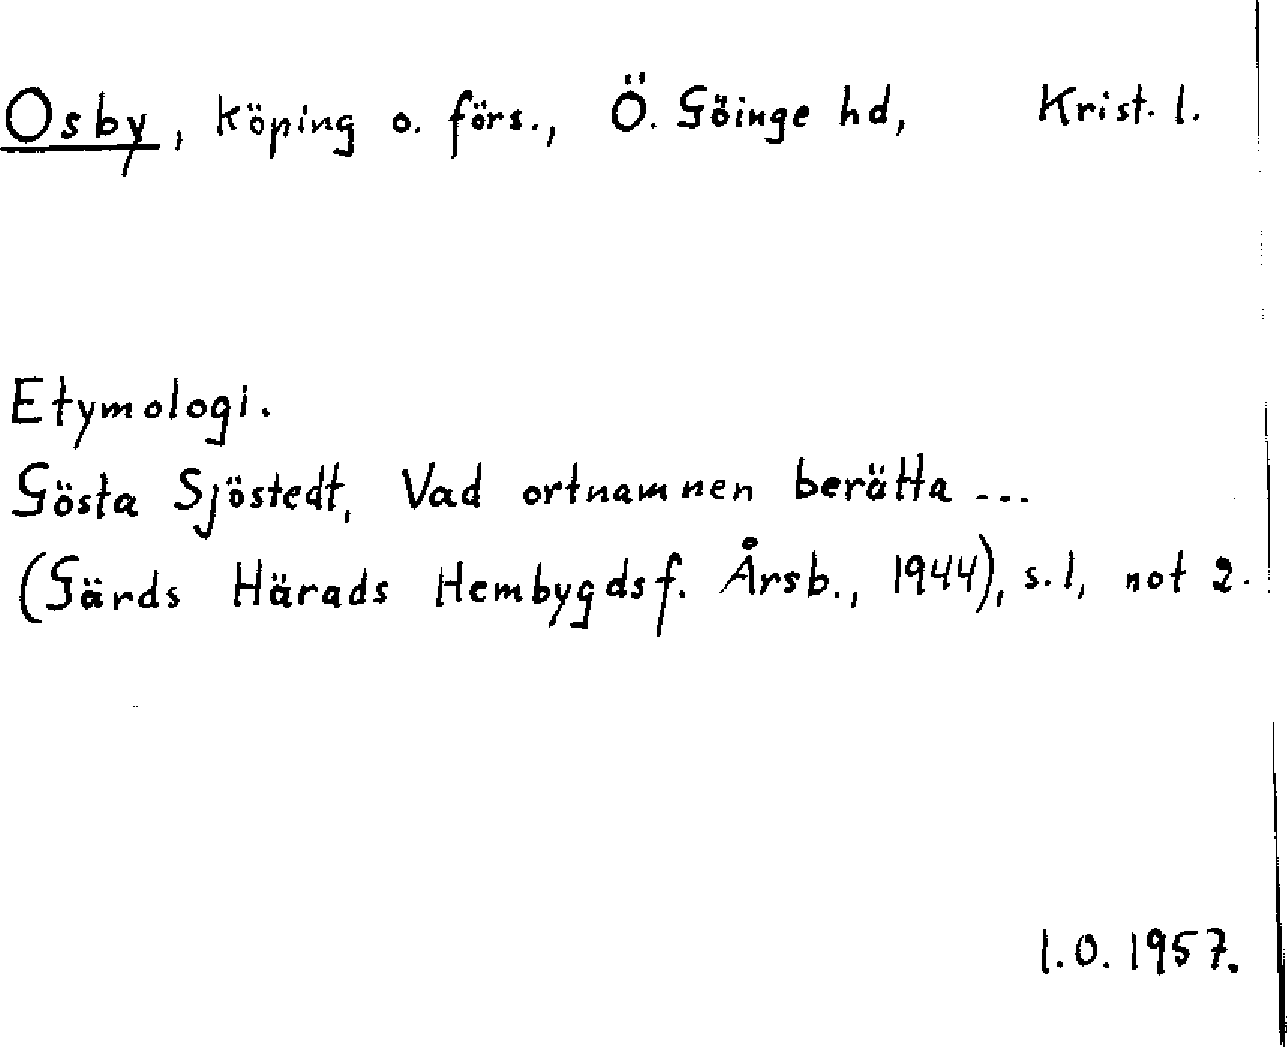 Osby, köping o. förs., Ö. Göinge hd, Krist. l.
Etymologi.
Gösta Sjöstedt, Vad ortnamnen berätta ...
(Gärds Härads Hembygdsf. Årsb., 1944), s. 1, not 2.
I.O. 1957.